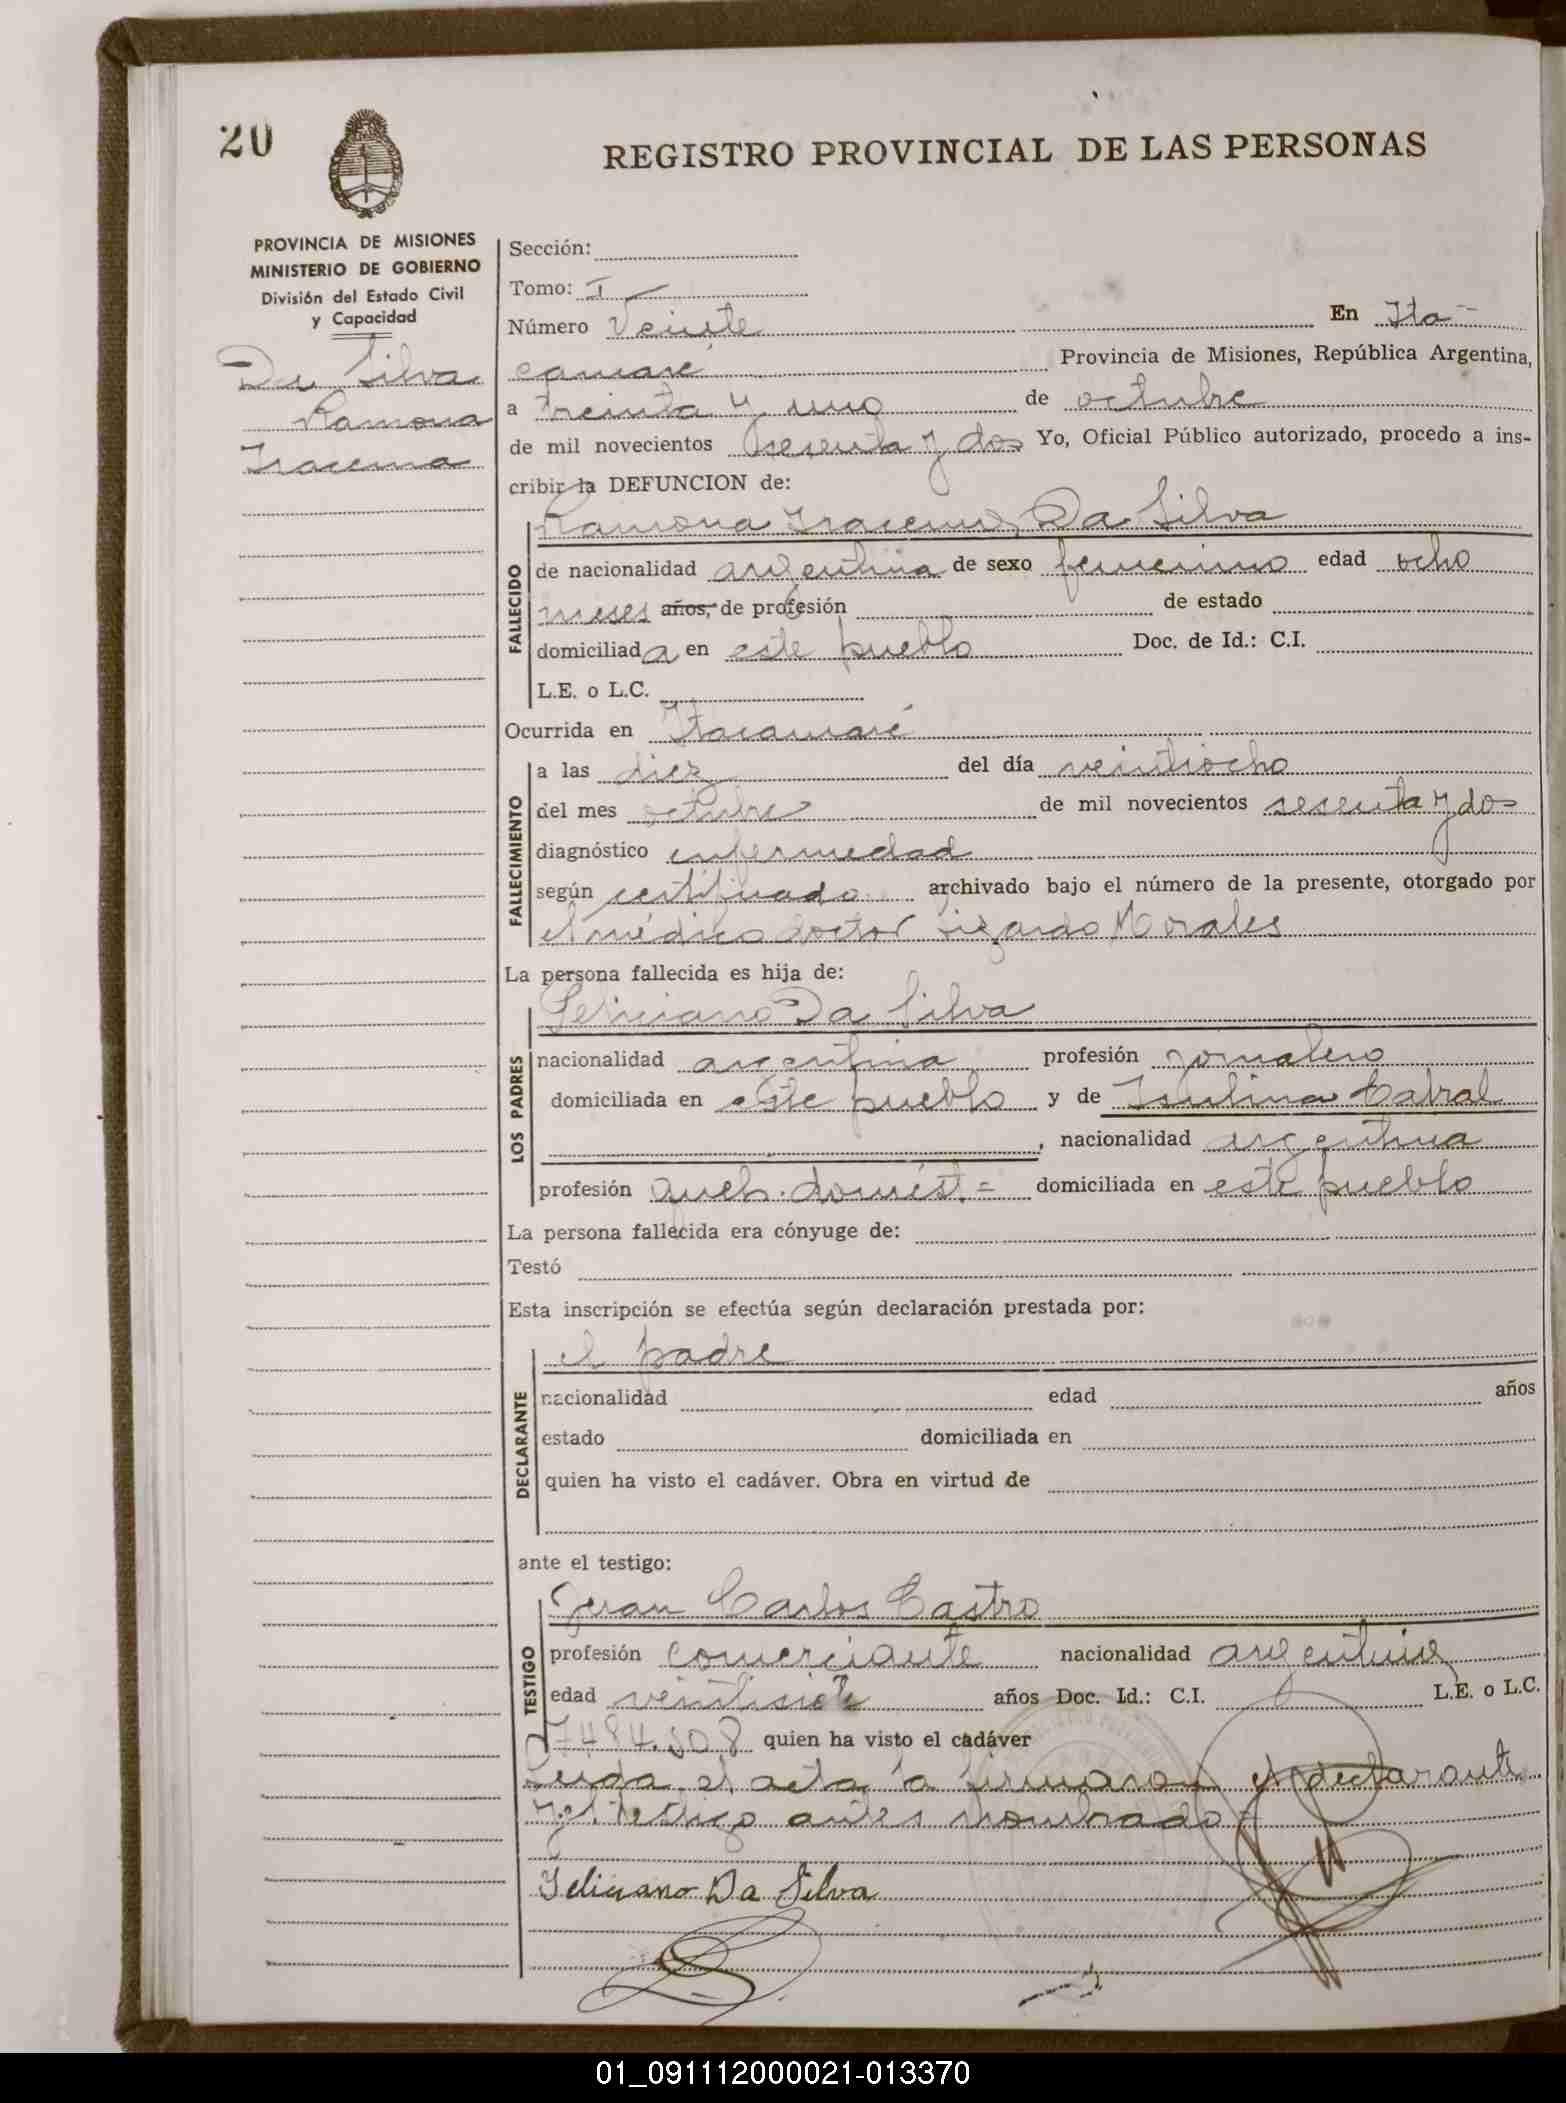 20
REGISTRO PROVINCIAL DE LAS PERSONAS
PROVINCIA DE MISIONES
MINISTERIO DE GOBIERNO
División del Estado Civil
y Capacidad
Da Silva
Ramona
Iracema
Sección:
Tomo: I
Número Veinte En Ita-
camaré Provincia de Misiones, República Argentina,
a treinta y uno de octubre
de mil novecientos sesenta y dos Yo, Oficial Público autorizado, procedo a ins-
cribir la DEFUNCION de:
Ramona Iracema Da Silva
FALLECIDO
de nacionalidad argentina de sexo femenino edad ocho
meses años, de profesión de estado
domiciliada en este pueblo Doc. de Id.: C.I.
L.E. o L.C.
Ocurrida en Itacamaré
FALLECIMIENTO
a las diez del día veintiocho
del mes octubre de mil novecientos sesenta y dos
diagnóstico enfermedad
según certificado archivado bajo el número de la presente, otorgado por
el médico doctor Lizardo Morales
La persona fallecida es hija de:
Feliciano Da Silva
LOS PADRES
nacionalidad argentina profesión jornalero
domiciliada en este pueblo y de Isulina Cabral
, nacionalidad argentina
profesión queh. domést.= domiciliada en este pueblo
La persona fallecida era cónyuge de:
Testó
Esta inscripción se efectúa según declaración prestada por:
el padre
DECLARANTE
nacionalidad edad años
estado domiciliada en
quien ha visto el cadáver. Obra en virtud de
ante el testigo:
Juan Carlos Castro
TESTIGO
profesión comerciante nacionalidad argentina
edad veintisiete años Doc. Id.: C.I. L.E. o L.C.
7484.508 quien ha visto el cadáver
Leida el acta la firmaron el declarante
y el testigo antes nombrado=
Feliciano Da Silva
01_091112000021-013370